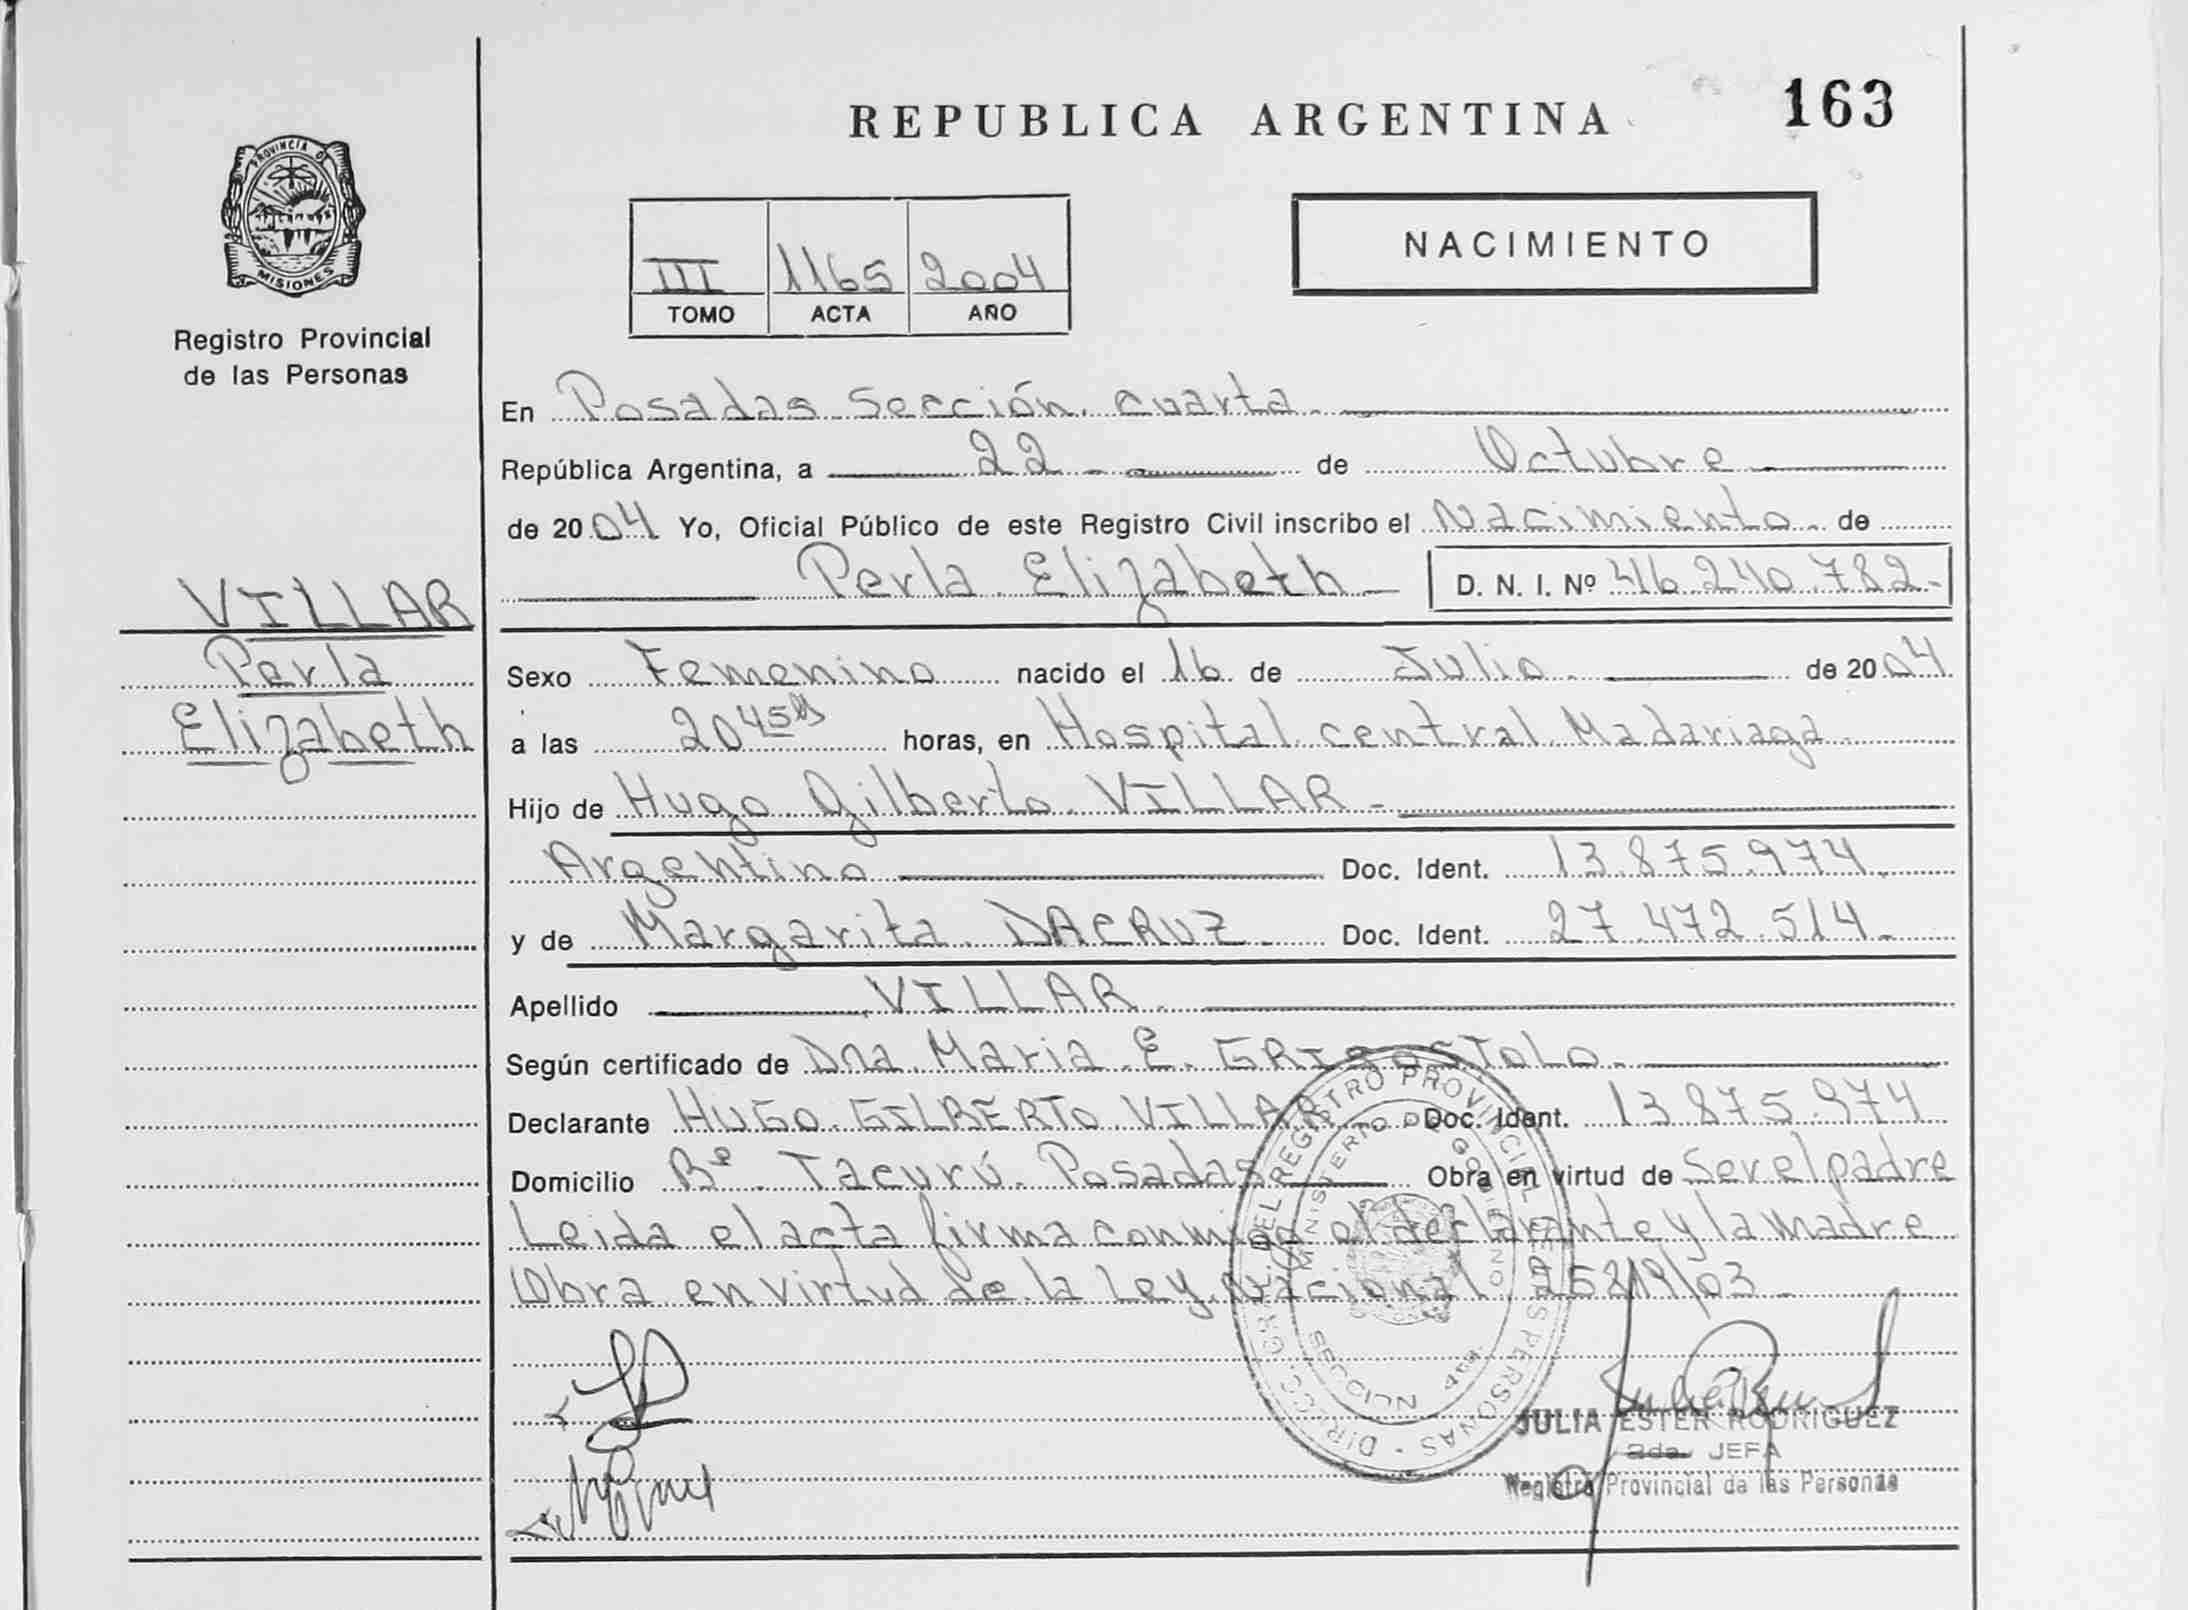 REPUBLICA ARGENTINA
163
PROVINCIA DE
MISIONES
Registro Provincial
de las Personas
III 1165 2004
TOMO ACTA AÑO
NACIMIENTO
En Posadas Sección cuarta
República Argentina, a 22 de Octubre
de 2004 Yo, Oficial Público de este Registro Civil inscribo el Nacimiento de
Perla Elizabeth D. N. I. Nº 46.240.782
VILLAR
Perla
Elizabeth
Sexo Femenino nacido el 16 de Julio de 2004
a las 20 45 hs horas, en Hospital central Madariaga
Hijo de Hugo Gilberto VILLAR
Argentino Doc. Ident. 13.875.974
y de Margarita DACRUZ Doc. Ident. 27.472.514
Apellido VILLAR
Según certificado de Dna Maria E.
Declarante HUGO GILBERTO VILLAR Doc. Ident. 13.875.974
Domicilio Bº Tacurú Posadas Obra en virtud de Ser el padre
Leida el acta firma conmigo el declarante y la madre
Obra en virtud de la Ley Nacional 25819/03
DEL REGISTRO PROVINCIAL DE LAS PERSONAS
MINISTERIO DE GOBIERNO
JULIA ESTER RODRIGUEZ
2da. JEFA
Registro Provincial de las Personas